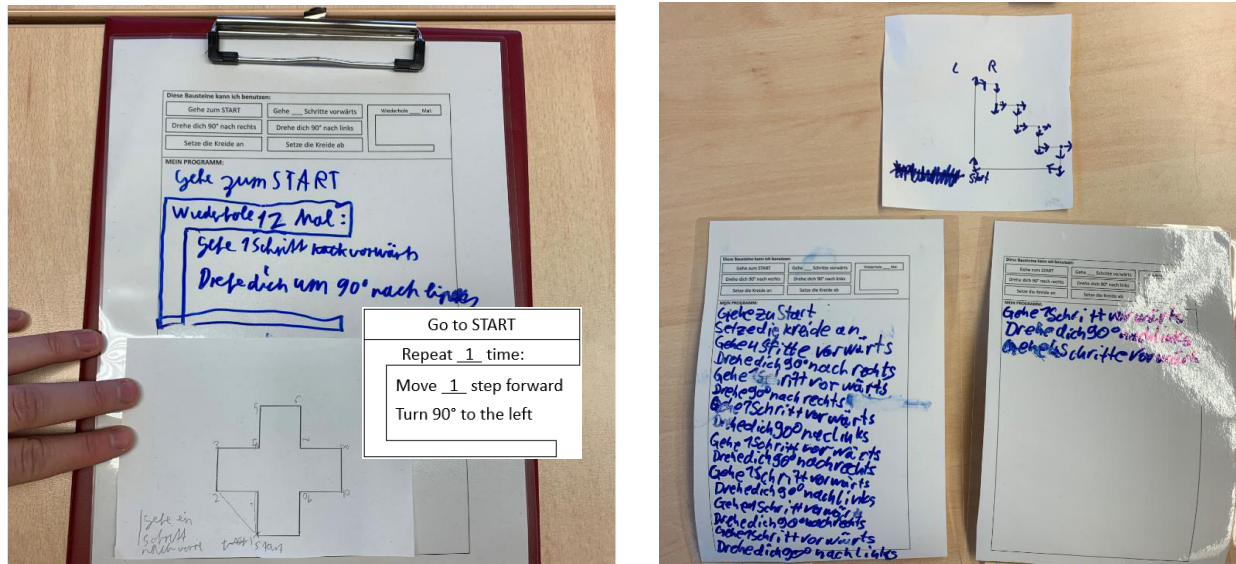 Diese Bausteine kann ich benutzen:
Gehe zum START
Gehe ___ Schritte vorwärts
Wiederhole ___ Mal:
Drehe dich 90° nach rechts
Drehe dich 90° nach links
Setze die Kreide an
Setze die Kreide ab
MEIN PROGRAMM:
Gehe zum START
Wiederhole 12 Mal:
Gehe 1 Schritt vorwärts
Drehe dich um 90° nach links
Go to START
Repeat 1 time:
Move 1 step forward
Turn 90° to the left
5 6
3 8
2
gehe ein
schritt
nach vorne
Start
L R
Start
Diese Bausteine kann ich benutzen:
Gehe zum START
Gehe ___ Schritte vorwärts
Wiederhole ___ Mal:
Drehe dich 90° nach rechts
Drehe dich 90° nach links
Setze die Kreide an
Setze die Kreide ab
MEIN PROGRAMM:
Gehe zu Start
Setze die kreide an
Gehe 4 Stritte vorwärts
Drehe dich 90° nach rechts
Gehe 1 Schritt vorwärts
Drehe 90° nach rechts
Gehe 1 Schritt vorwärts
Drehe dich 90° nac links
Gehe 1 Schritt vorwärts
Drehe dich 90° nach rechts
Gehe 1 Schritt vorwärts
Drehe dich 90° nach links
Gehe 1 Schritt vorwärts
Drehe dich 90° nach rechts
Gehe 1 Schritt vorwärts
Drehe dich 90° nach links
Diese Bausteine kann ich benutzen:
Gehe zum START
Gehe ___ Schritte
Drehe dich 90° nach rechts
Drehe dich 90° nach links
Setze die Kreide an
Setze die Kreide ab
MEIN PROGRAMM:
Gehe 1 Schritt vorwärts
Drehe dich 90°
Gehe Schritte vorwärts